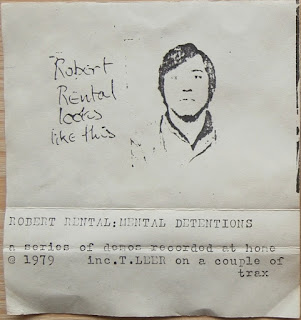 Robert
Rental
looks
like this
ROBERT RENTAL:MENTAL DETENTIONS
a series of demos recorded at home
© 1979 inc.T.LEER on a couple of
trax